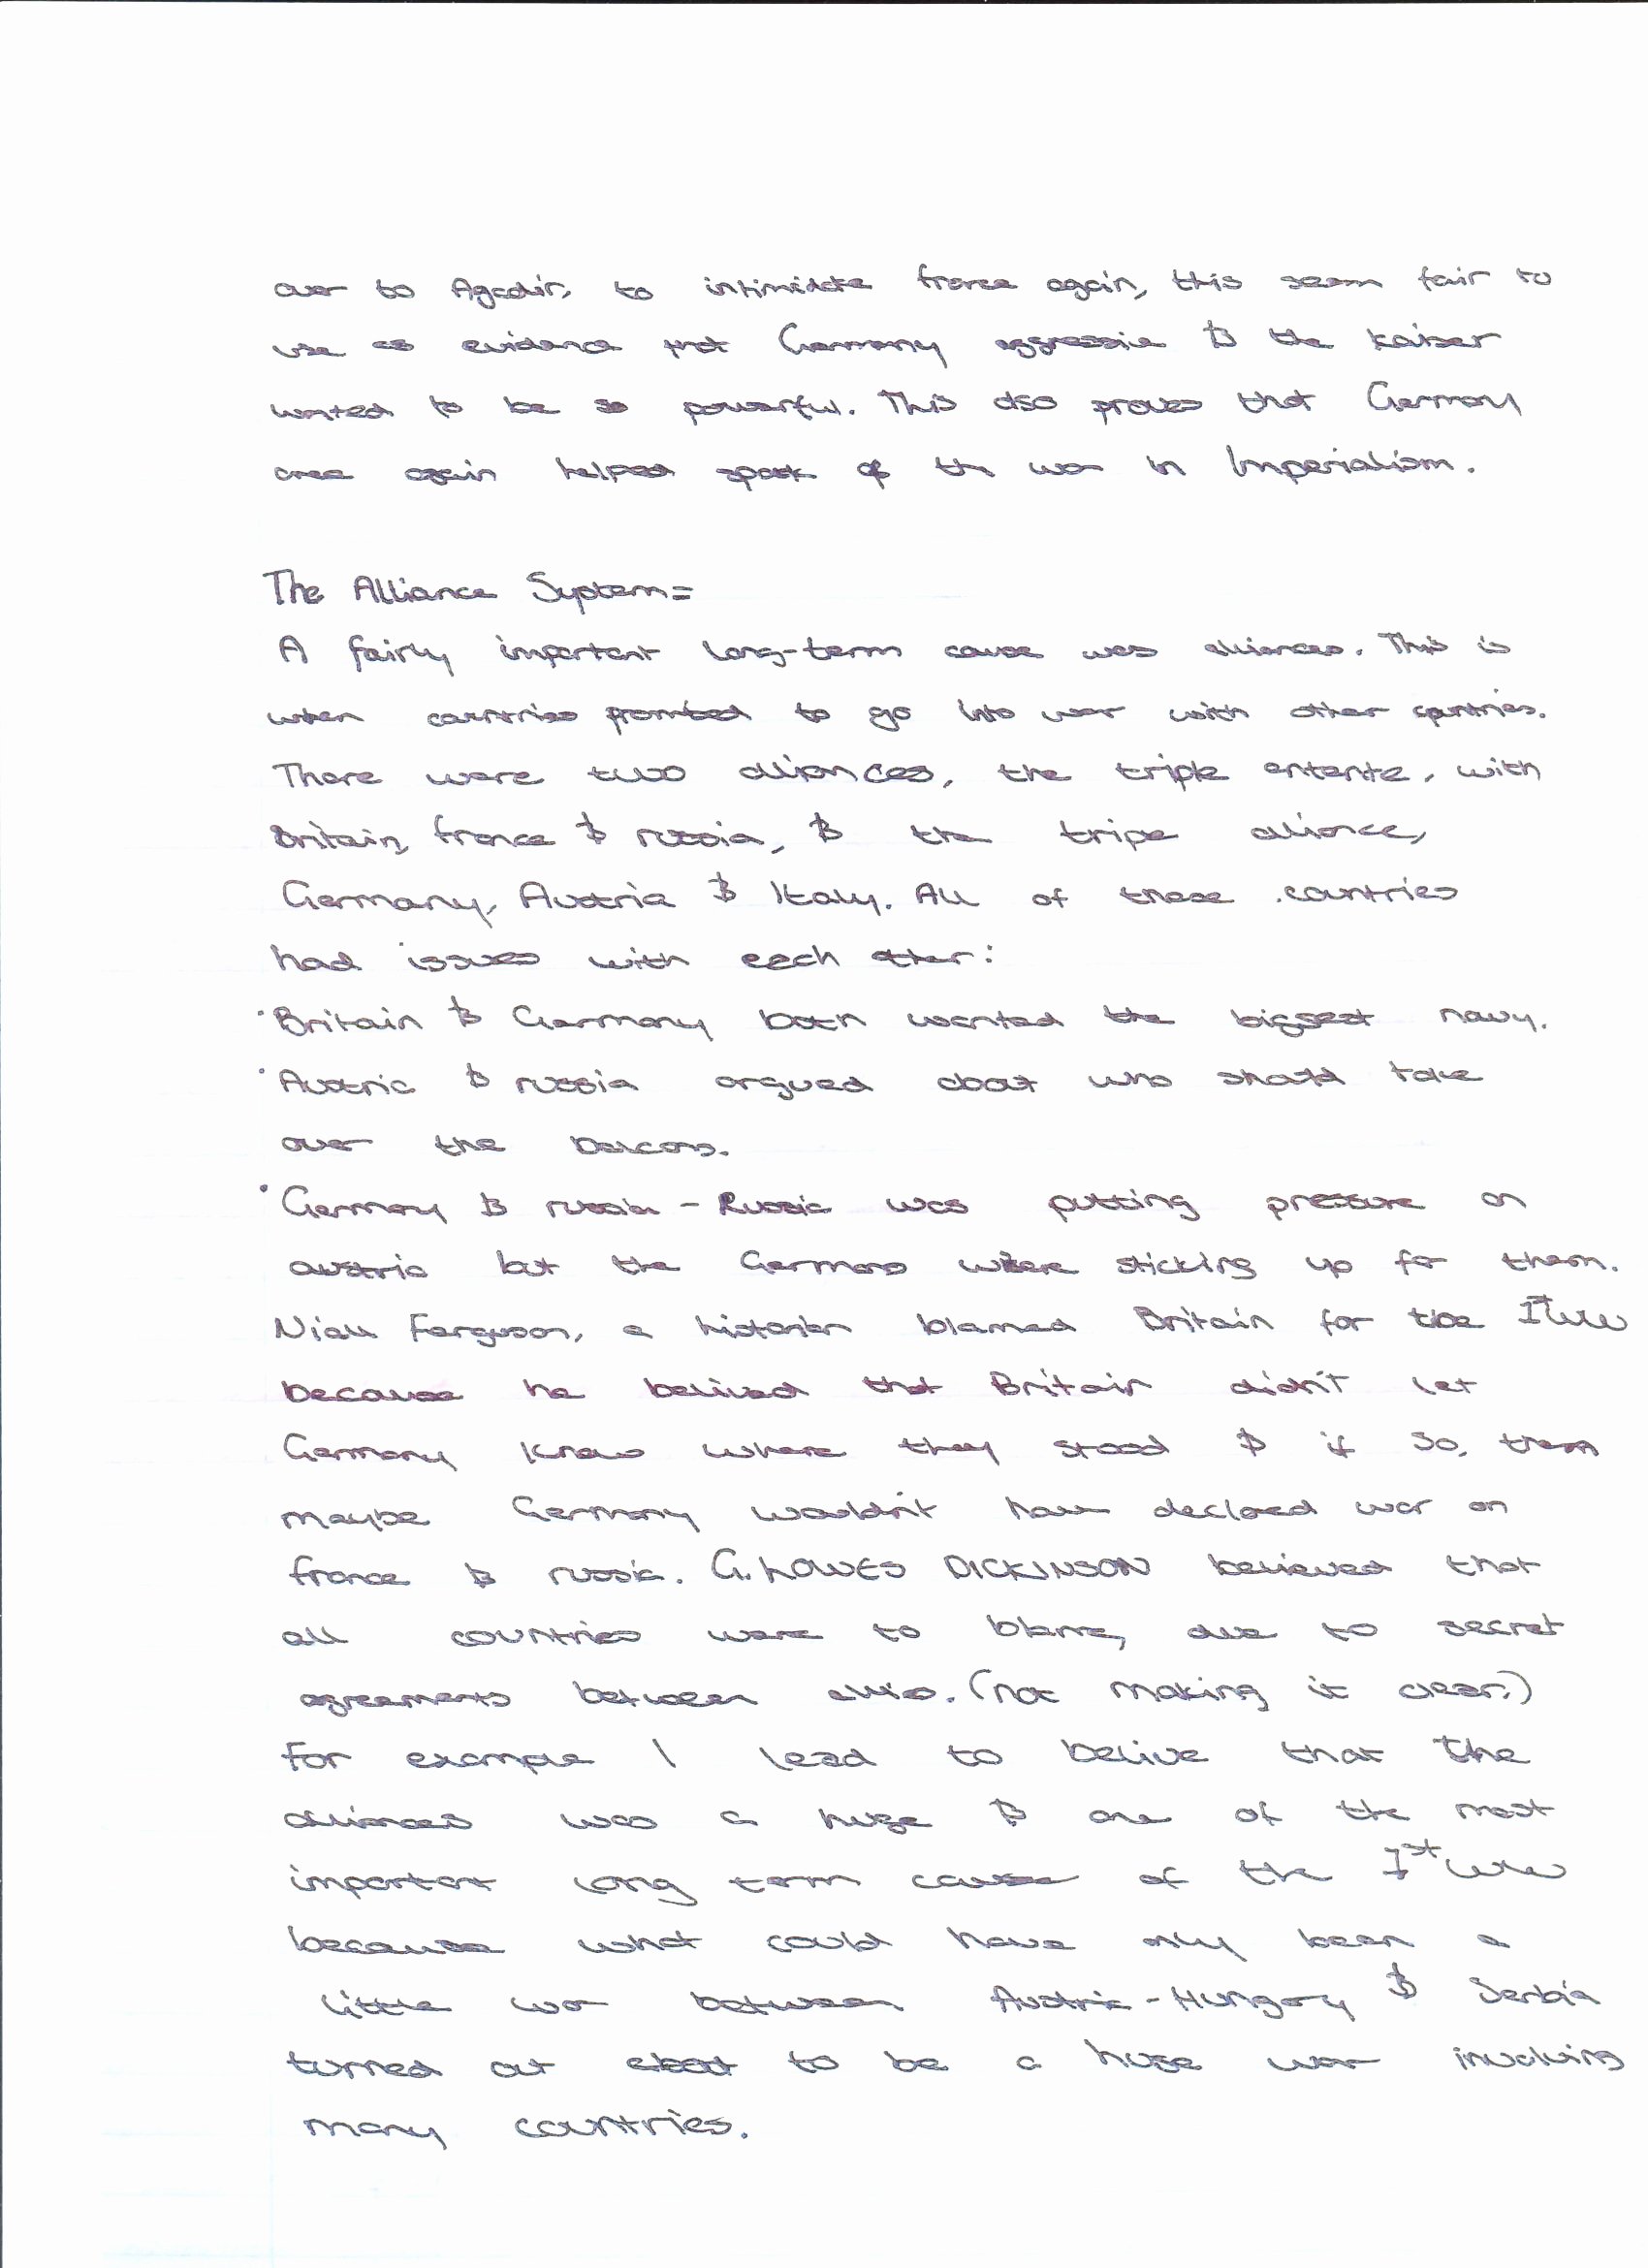 over to Agadir, to intimidate france again, this seem fair to
use as evidence that Germany aggressive & the kaiser
wanted to be so powerful. This also proves that Germany
once again helped spark of th war in Imperialism.
The Alliance System=
A fairly important long-term cause was alliances. This is
when countries promised to go into war with other countries.
There were two alliances, the triple entente, with
Britain, france & russia, & the tripe alliance,
Germany, Austria & Italy. All of these countries
had issues with each other:
•Britain & Germany both wanted the biggest navy.
•Austria & russia argued about who should take
over the balcans.
•Germany & russia - Russia was putting pressure on
austria but the Germans where sticking up for them.
Niall Ferguson, a historian blamed Britain for the 1st WW
because he belived that Britain didn't let
Germany know where they stood & if so, then
maybe Germany wouldn't have declared war on
france & russia. G. LOWES DICKINSON believed that
all countries were to blame, due to secret
agreements between allies. (not making it clear.)
For example I lead to belive that the
alliances was a huge & one of the most
important long term cause of the 1st WW
because what could have only been a
little war between Austria-Hungary & Serbia
turned out to be a huge war involving
many countries.